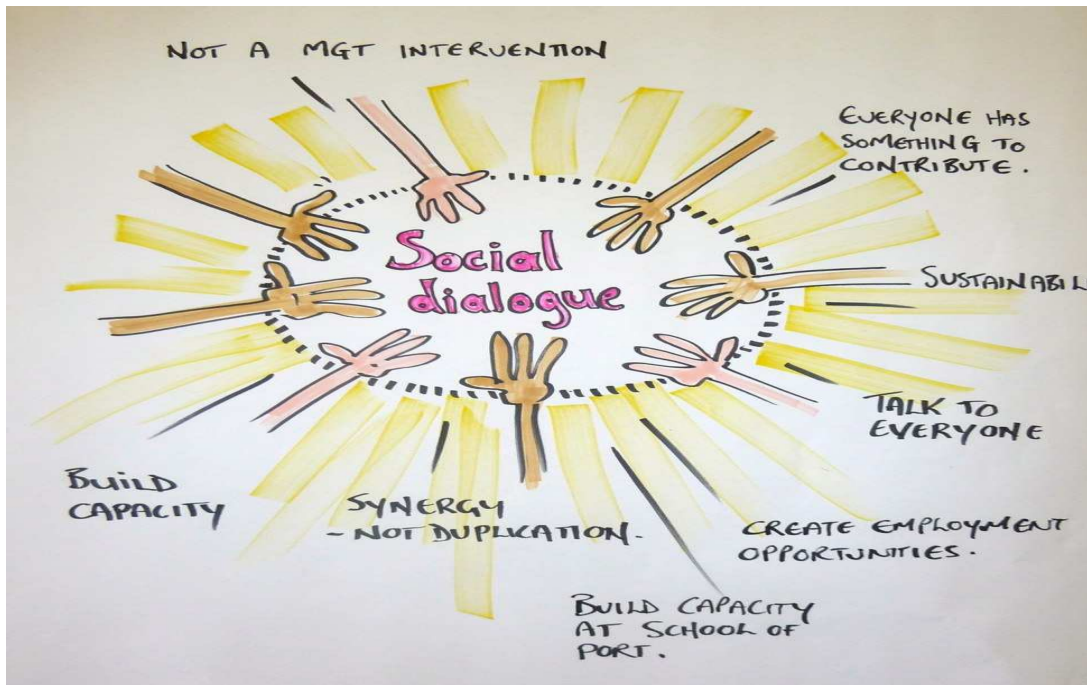 NOT A MGT INTERVENTION
EVERYONE HAS
SOMETHING TO
CONTRIBUTE.
Social
dialogue
SUSTAINABIL
TALK TO
EVERYONE
BUILD
CAPACITY
SYNERGY
- NOT DUPLICATION.
CREATE EMPLOYMENT
OPPORTUNITIES.
BUILD CAPACITY
AT SCHOOL OF
PORT.